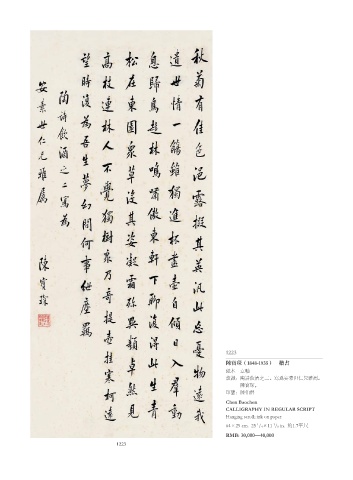 秋菊有佳色浥露掇其英汎此忘憂物遠我
遺世情一觴雖獨進杯盡壺自傾日入羣動
息歸鳥趨林鳴嘯傲東軒下聊復得此生青
松在東園衆草沒其姿凝霜殄異類卓然見
高枝連林人不覺獨樹衆乃奇提壺挂寒柯遠
望時復為吾生夢幻間何事紲塵羈
陶詩飲酒之二寫為
安素世仁兄雅屬
陳寶琛
1223
陳寶琛（1848-1935） 楷書
Chen Baochen
CALLIGRAPHY IN REGULAR SCRIPT
Hanging scroll; ink on paper
RMB: 30,000—40,000
1223